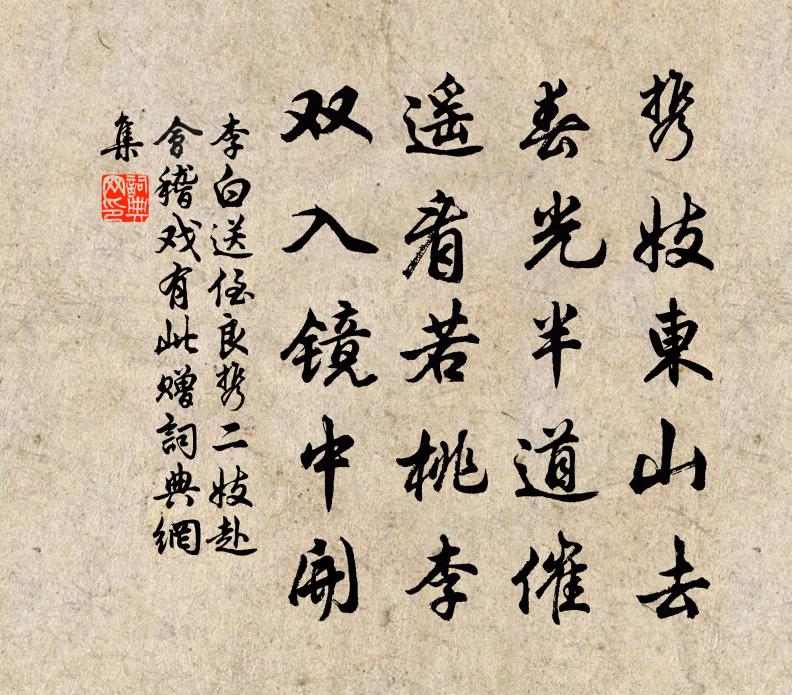 携妓東山去
春光半道催
遥看若桃李
双入镜中開
李白送侄良携二妓赴
會稽戏有此赠詞典網
集
詞典
网印